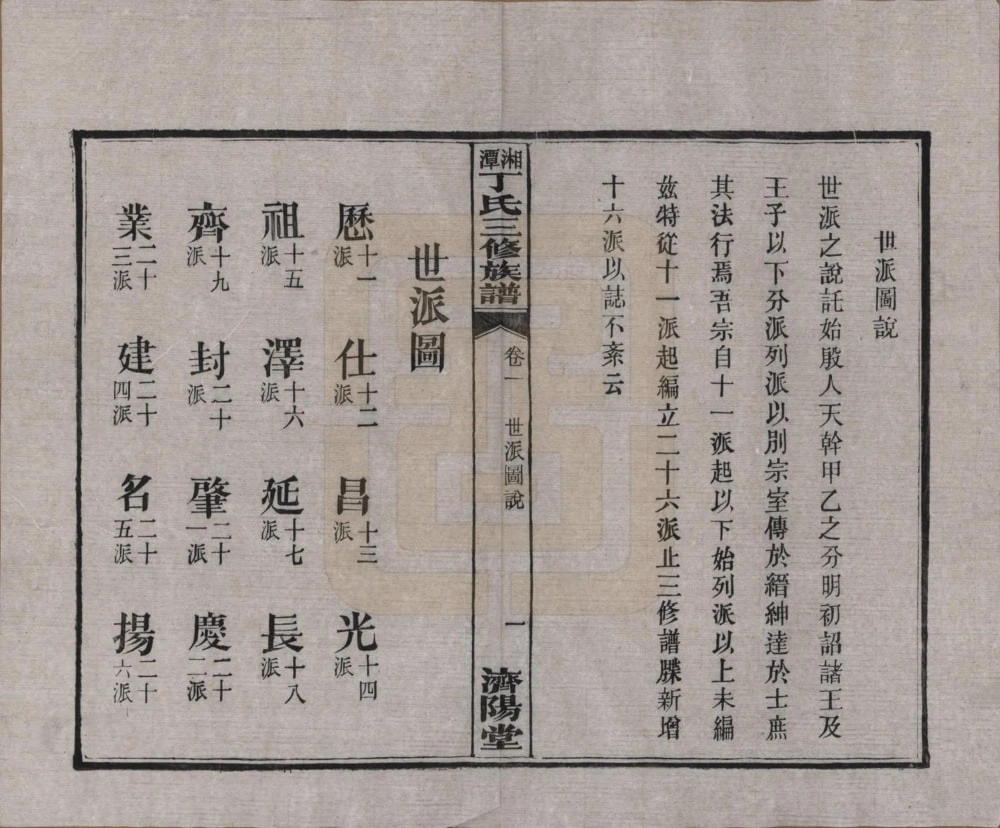 世派圖說
世派之說託始殷人天幹甲乙之分明初詔諸王及
王子以下分派列派以別宗室傳於縉紳達於士庶
其法行焉吾宗自十一派起以下始列派以上未編
茲特從十一派起編立二十六派止三修譜牒新增
十六派以誌不紊云
湘潭丁氏三修族譜
卷一
世派圖說
一
濟陽堂
世派圖
歷十一派 仕十二派 昌十三派 光十四派
祖十五派 澤十六派 延十七派 長十八派
齊十九派 封二十派 肇二十一派 慶二十二派
業二十三派 建二十四派 名二十五派 揚二十六派